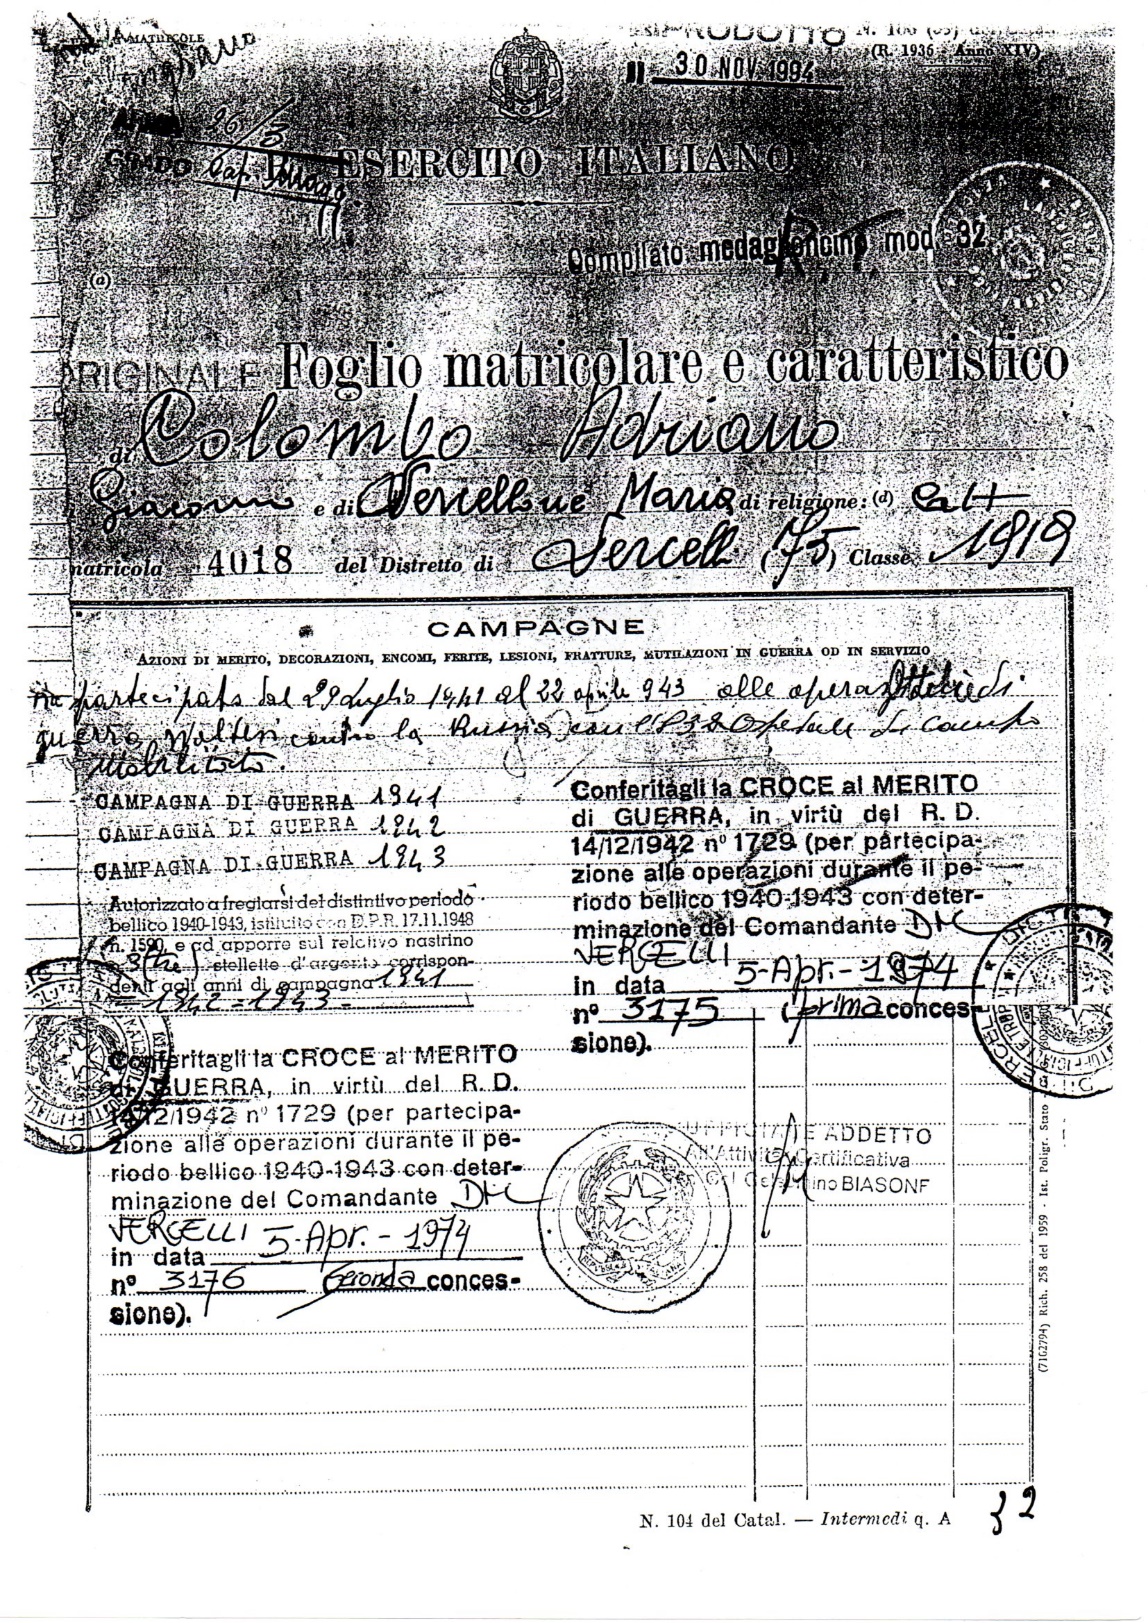 MATRICOLE
RODOTTO
30 NOV. 1994
(R. 1936 - Anno XIV)
96/3
GRADO Cap.
ESERCITO ITALIANO
Compilato medaglioncino mod. 32
(a)
ORIGINALE Foglio matricolare e caratteristico
di Colombo Adriano
Giacomo e di Vercellone Maria di religione: (d) Catt
matricola 4018 del Distretto di Vercelli (75) Classe 1919
CAMPAGNE
AZIONI DI MERITO, DECORAZIONI, ENCOMI, FERITE, LESIONI, FRATTURE, MUTILAZIONI IN GUERRA OD IN SERVIZIO
Ha partecipato dal 29 Luglio 1941 al 22 aprile 943 alle operaz di
guerra contro la Russia con l'832 Ospedale da campo
Mobilitato.
CAMPAGNA DI GUERRA 1941
CAMPAGNA DI GUERRA 1942
CAMPAGNA DI GUERRA 1943
Autorizzato a fregiarsi del distintivo periodo
bellico 1940-1943, istituito con D.P.R. 17.11.1948
n. 1590, e ad apporre sul relativo nastrino
3 (tre) stellette d'argento corrispon-
denti agli anni di campagna 1941
= 1942 = 1943 =
Conferitagli la CROCE al MERITO
di GUERRA, in virtù del R. D.
14/12/1942 n° 1729 (per partecipa-
zione alle operazioni durante il pe-
riodo bellico 1940-1943 con deter-
minazione del Comandante DM
VERCELLI
in data 5-Apr.-1974
n° 3175 (prima conces-
sione).
Conferitagli la CROCE al MERITO
di GUERRA, in virtù del R. D.
14/12/1942 n° 1729 (per partecipa-
zione alle operazioni durante il pe-
riodo bellico 1940-1943 con deter-
minazione del Comandante DM
VERCELLI
in data 5-Apr.-1974
n° 3176 Seconda conces-
sione).
UFFICIALE ADDETTO
All'Attività Certificativa
BIASONE
(7102794) Rich. 258 del 1959 - Ist. Poligr. Stato
N. 104 del Catal. — Intermedi q. A
32